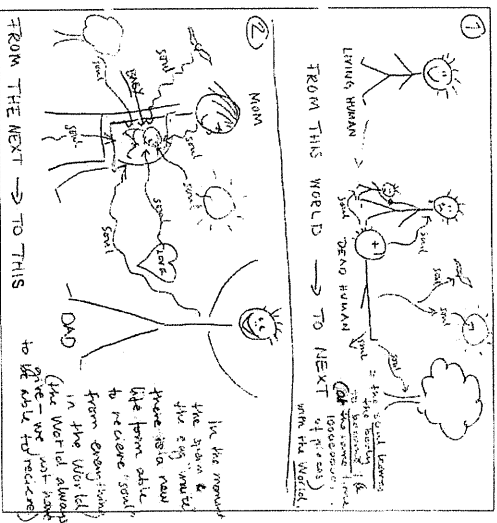 1
LIVING HUMAN
DEAD HUMAN
soul
soul
soul
soul
soul
soul = the soul leaves
the body
(at the same time
of pieces)
with the World.
FROM THIS WORLD → TO NEXT
2
MOM
BABY
soul
soul
soul
soul
soul
soul
LOVE
DAD
in the moment
the sperm &
the egg "unite"
there is a new
life form able
to recieve "soul"
from everything
in the World
(the World always
give - we just have
to be able to recieve)
FROM THE NEXT → TO THIS